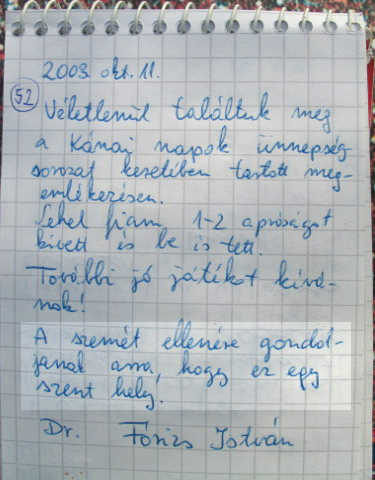 2003. okt. 11.
52
Véletlenül találtuk meg
a Kánai napok ünnepség
sorozat keretében tartott meg-
emlékezésen.
Lehel fiam 1-2 apróságot
kivett és be is tett.
További jó játékot kívá-
nok!
A szemét ellenére gondol-
janak arra, hogy ez egy
szent hely!
Dr. István